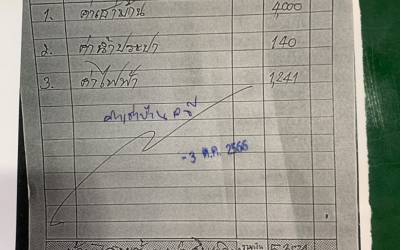 1. ค่าเช่าบ้าน 4,000
2. ค่าน้ำประปา 140
3. ค่าไฟฟ้า 1,241
ค่าเช่าบ้าน
- 3 ต.ค. 2566